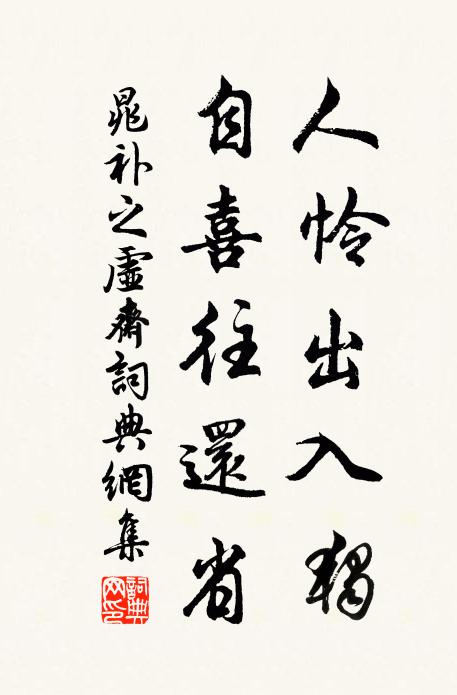 人怜出入獨
自喜往還省
晁补之虛齋詞典網集
詞典網印